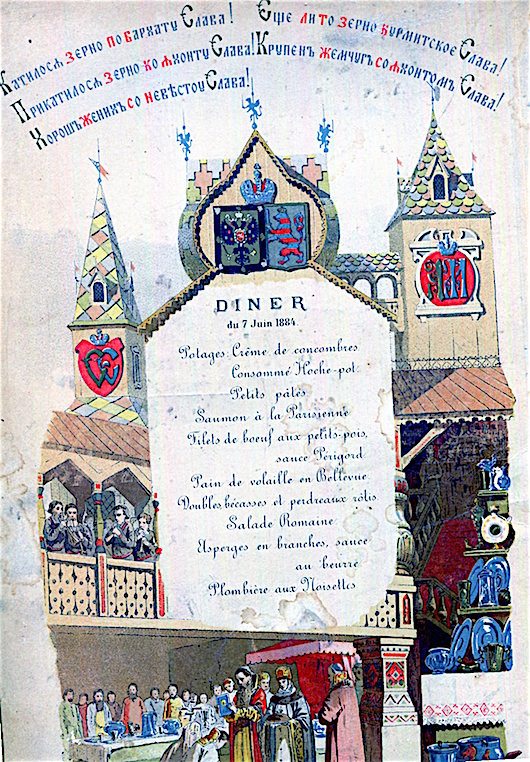 Катилося зерно по бархату Слава! Еще ли то зерно бурмитское Слава!
Прикатилося зерно ко яхонту Слава! Крупенъ жемчугъ со яхонтомъ Слава!
Хорошъ женихъ со невѣстою Слава!
DINER
du 7 Juin 1884.
Potages: Crême de concombres
Consommé Hoche-pot
Petits pâtés
Saumon à la Parisienne
Filets de boeuf aux petits-pois,
sauce Périgord
Pain de volaille en Bellevue
Doubles, bécasses et perdreaux rôtis
Salade Romaine
Asperges en branches, sauce
au beurre
Plombière aux Noisettes